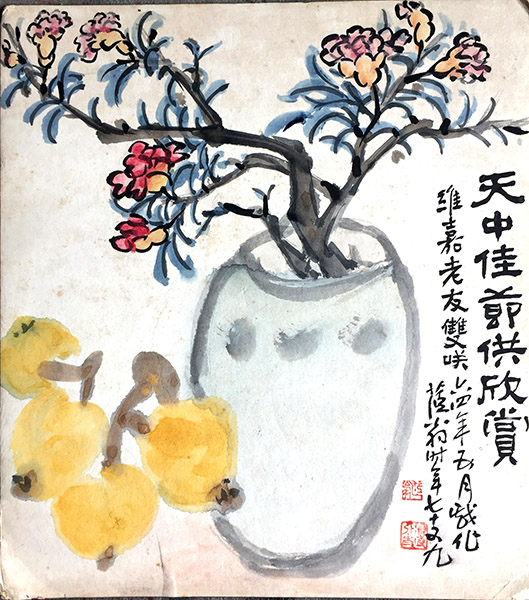 天中佳節供欣賞
維嘉老友雙咲
六四年五月戲作
蔭翁時年七十又九